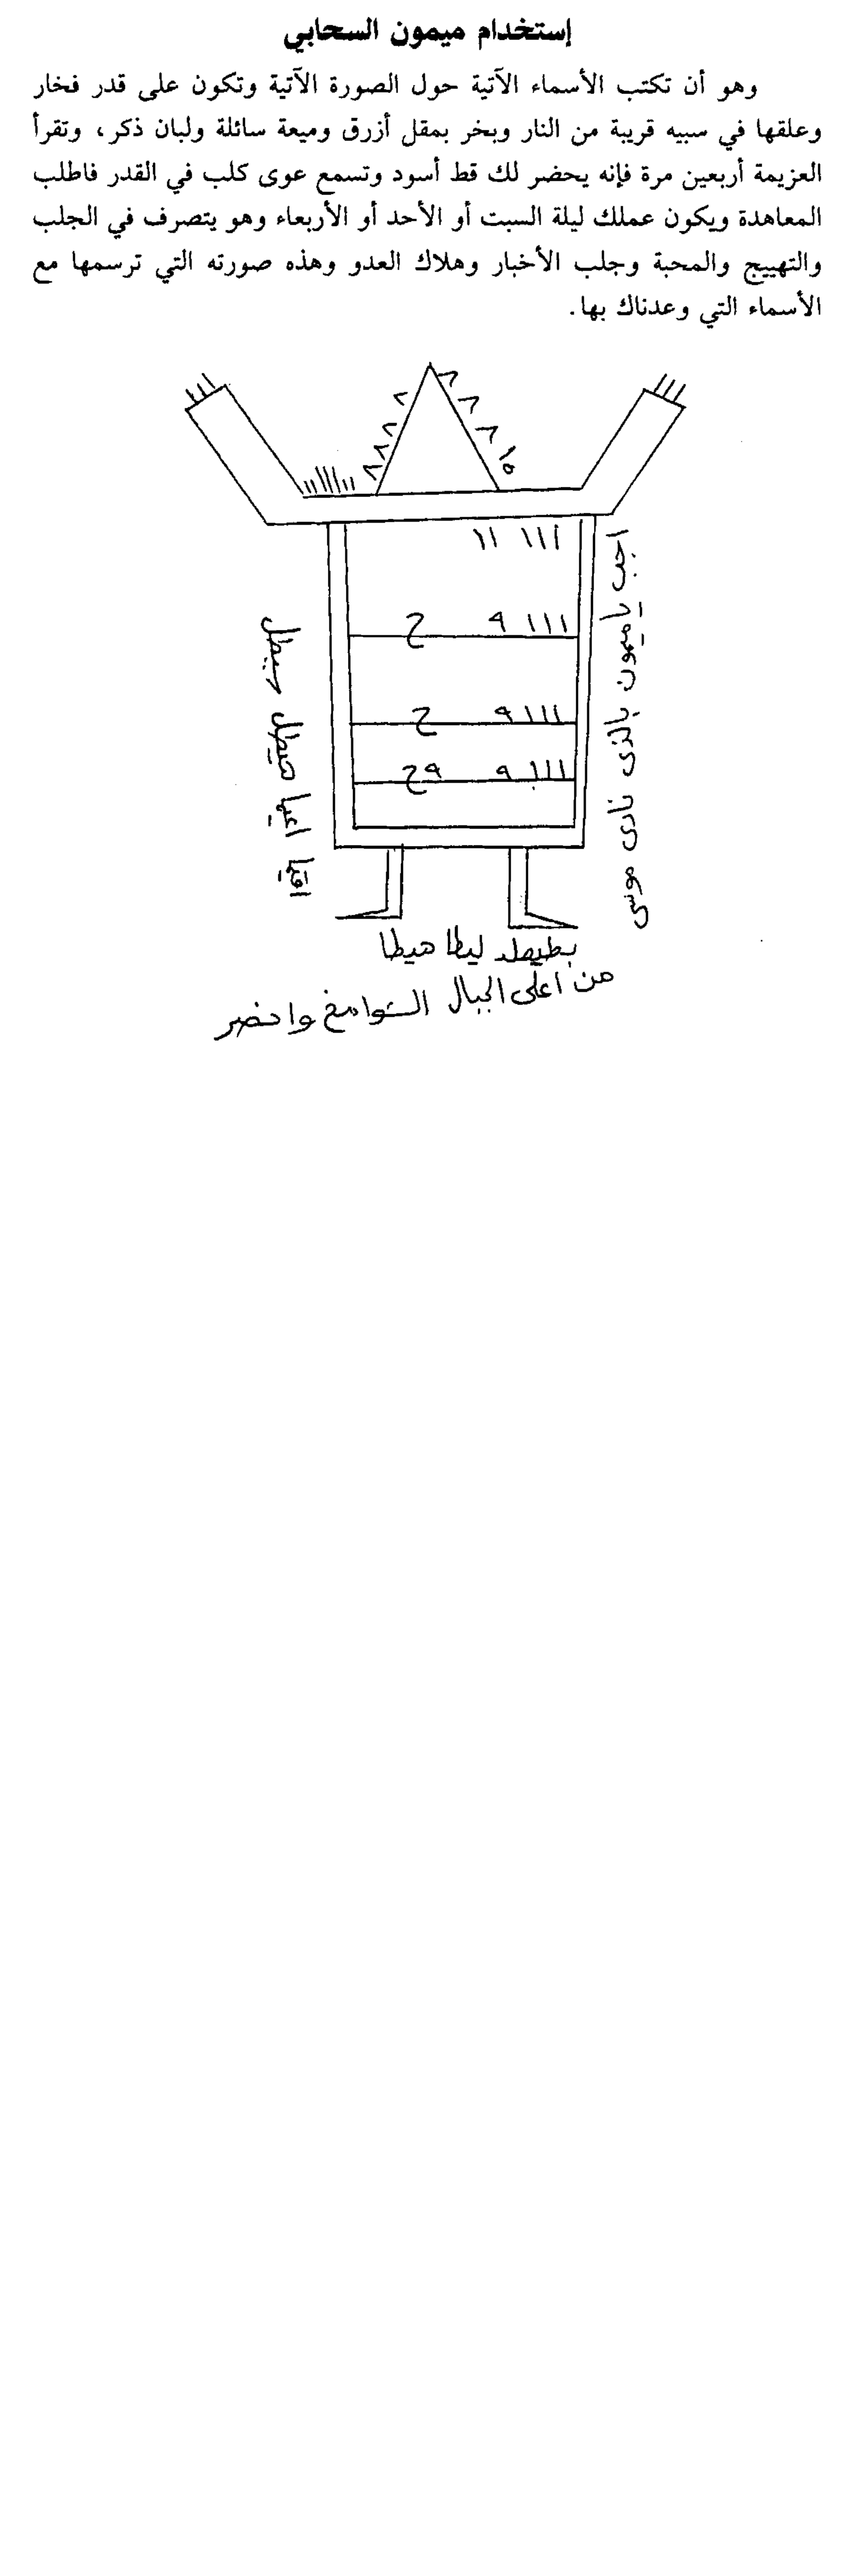 إستخدام ميمون السحابي
وهو أن تكتب الأسماء الآتية حول الصورة الآتية وتكون على قدر فخار
وعلقها في سبيه قريبة من النار وبخر بمقل أزرق وميعة سائلة ولبان ذكر، وتقرأ
العزيمة أربعين مرة فإنه يحضر لك قط أسود وتسمع عوى كلب في القدر فاطلب
المعاهدة ويكون عملك ليلة السبت أو الأحد أو الأربعاء وهو يتصرف في الجلب
والتهييج والمحبة وجلب الأخبار وهلاك العدو وهذه صورته التي ترسمها مع
الأسماء التي وعدناك بها.
ااا اا
ااا ٩ ح
ااا ٩ ح
ااا ٩ ٩ح
اجب يا ميمون بالذى نادى موسى
هيطل
بطيطا هيطا
من اعلى الجبال الشوامخ واحضر